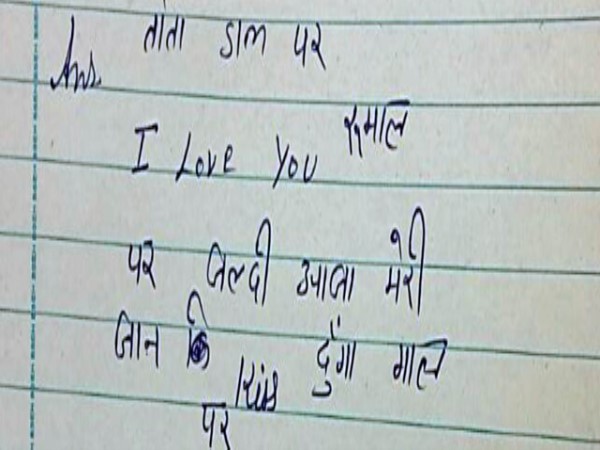 तोता डाल पर
Ans.
I Love You रुमाल
पर जल्दी आजा मेरी
जान Kiss दुँगा गाल
पर